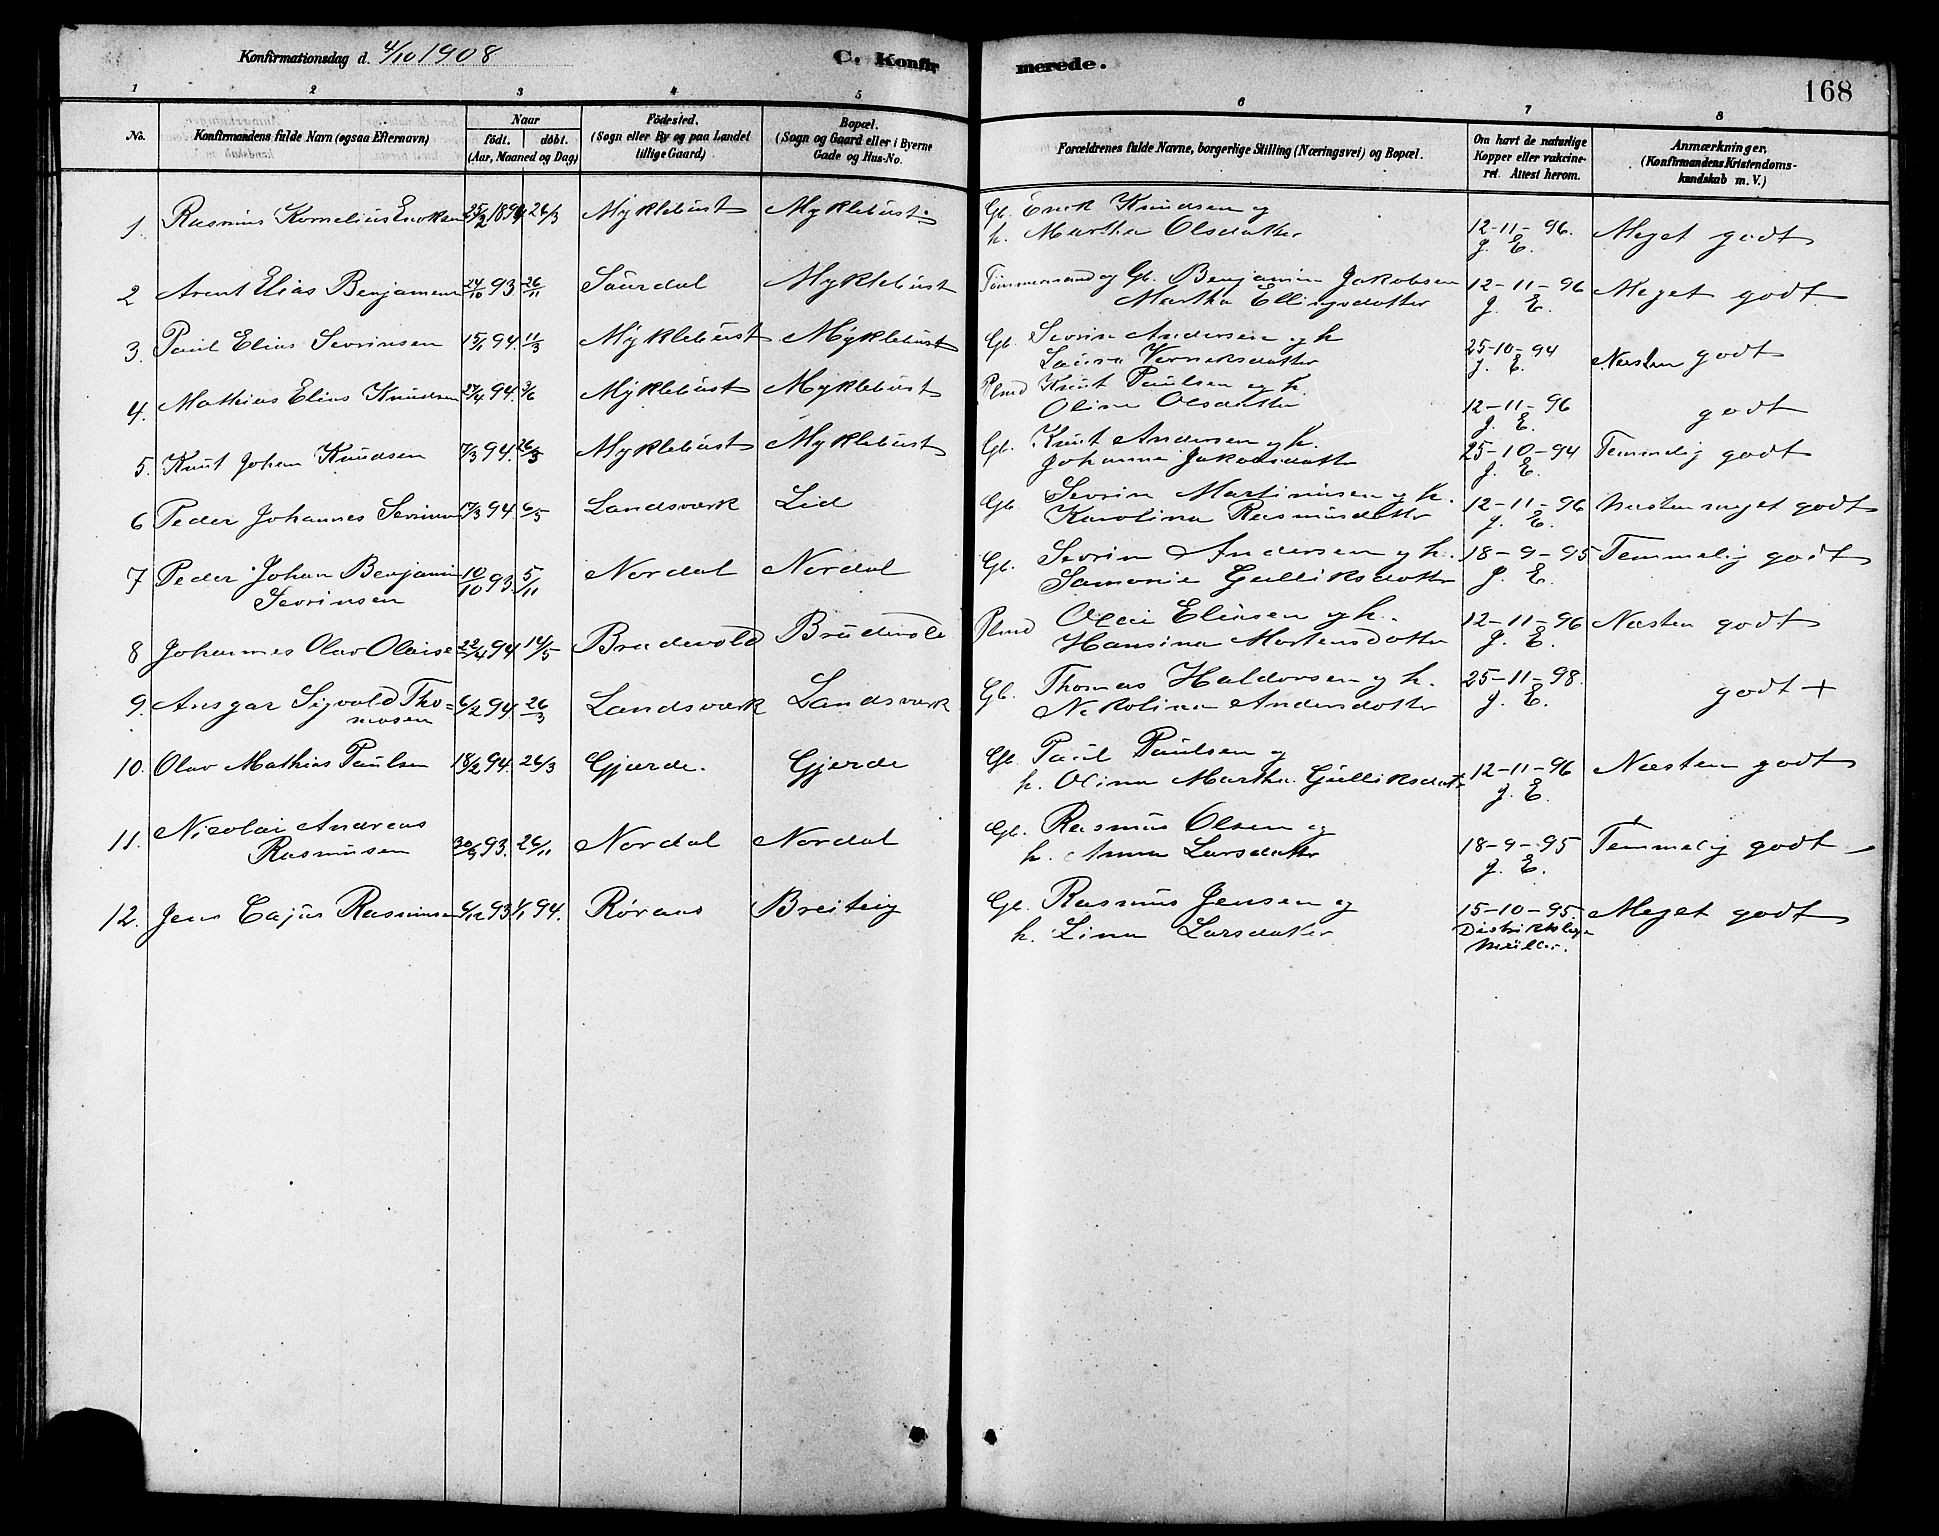 Konfirmationsdag d. 4/10 1908
C. Konfirmerede.
168
1 2 3 4 5 6 7 8
No.
Konfirmandens fulde Navn (ogsaa Efternavn)
Naar
födt. döbt.
(Aar, Maaned og Dag)
Födested.
(Sogn eller By og paa Landet
tillige Gaard)
Bopæl.
(Sogn og Gaard eller i Byerne
Gade og Hus-No.
Forældrenes fulde Navne, borgerlige Stilling (Næringsvei) og Bopæl.
Om havt de naturlige
Kopper eller vakcine-
ret. Attest herom.
Anmærkninger,
(Konfirmandens Kristendoms-
kundskab m. V.)
1. Rasmus Kornelius Enoksen 25/2 1894 26/3 Myklebust Myklebust Gb. Enok Knudsen og
h. Martha Olsdatter 12-11-96. J. E. Meget godt
2 Arent Elias Benjamins 24/10 93 26/11 Saurdal Myklebust Tømmermand og Gb. Benjamin Jakobsen
Martha Ellingsdatter 12-11-96 J. E. Meget godt
3. Paul Elias Sevrinsen 15/1 94. 11/3 Myklebust Myklebust Gb. Sevrin Andersen og h
Laura Vernersdatter 25-10-94 J. E. Næsten godt
4. Mathias Elias Knudsen 27/4 94. 3/6 Myklebust Myklebust Plmd Knut Paulsen og h.
Oline Olsdatter 12-11-96 J. E. godt
5. Knut Johan Knudsen 7/3 94. 26/3 Myklebust Myklebust Gb. Knut Andersen og h.
Johanne Jakobsdatter 25-10-94 J. E. Temmelig godt
6 Peder Johannes Sevrinsen 17/3 94 6/5 Landsværk Lid Gb. Sevrin Martinusen og h.
Karolina Rasmusdatter 12-11-96 J. E. Næsten meget godt
7 Peder Johan Benjamin
Sevrinsen 10/10 93. 5/11 Nordal Nordal Gb. Sevrin Andersen og h.
Samonie Gulliksdatter 18-9-95 J. E. Temmelig godt
8 Johannes Olav Olaise 22/4 94 14/5 Brudevold Brudevold Plmd Olai Eliasen og h.
Hansina Mortensdatter 12-11-96 J. E. Næsten godt
9. Ansgar Sigvald Tho-
masen 6/2 94 26/3 Landsværk Landsværk Gb. Thomas Haldorsen og h.
Nikolina Andersdatter 25-11-98. J. E. godt +
10. Olav Mathias Paulsen 18/2 94. 26/3 Gjærde. Gjerde Gb. Paul Paulsen og
h. Olina Martha Gulliksdatr 12-11-96 J. E. Næsten godt
11. Nicolai Andreas
Rasmusen 30/9 93. 26/11 Nordal Nordal Gb. Rasmus Olsen og
h. Anna Larsdatter 18-9-95 J. E. Temmelig godt
12. Jens Cajus Rasmusen 6/12 93 1/1 94. Røraas Breiteig Gb. Rasmus Jensen og
h. Lina Larsdatter 15-10-95. Distriktslæge
Müller. Meget godt